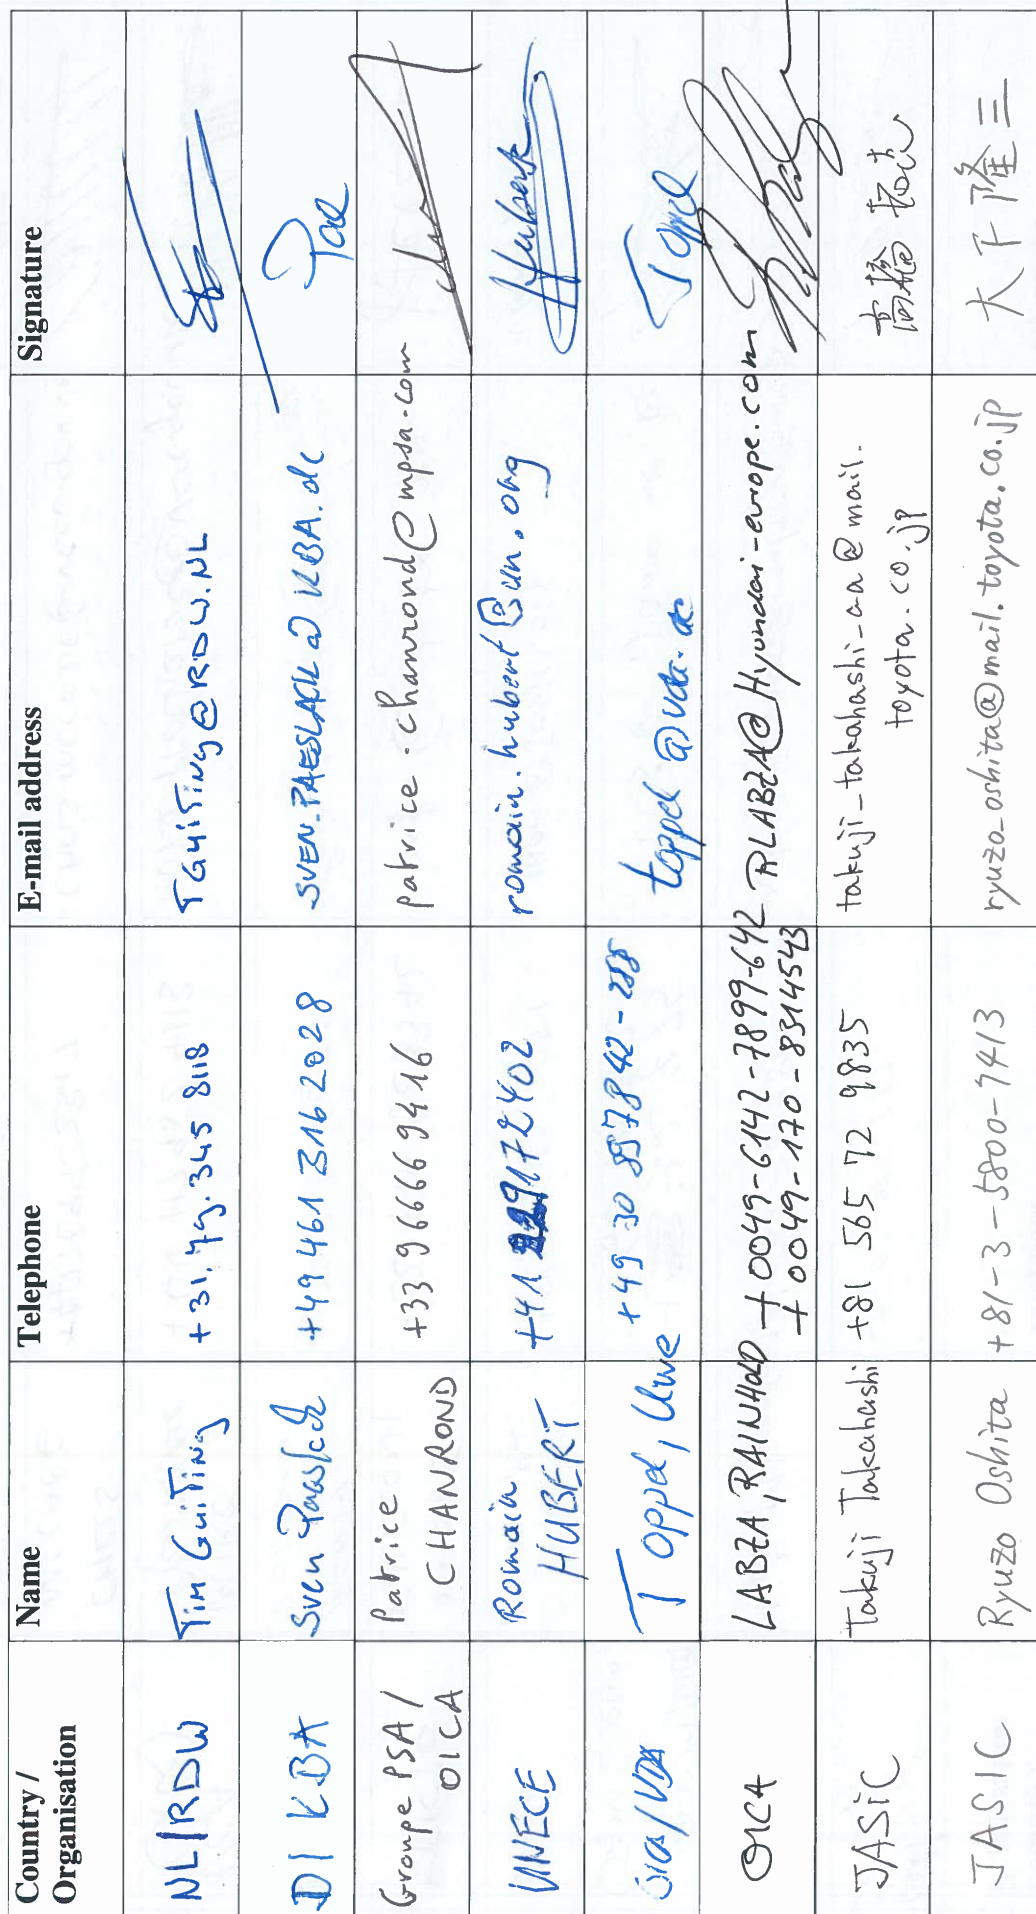 Country / Organisation Name Telephone E-mail address Signature
NL/RDW Tim Guiting +31.79.345 8118 TGuiTing@RDW.NL
D/ KBA Sven Paeslack +49 461 316 2028 SVEN.PAESLACK@KBA.de Pae
Groupe PSA/ OICA Patrice CHANROND +33 9 66 66 94 16 patrice.chanrond@mpsa.com
UNECE Romain HUBERT +41 229172402 romain.hubert@un.org Hubert
OICA/VDA Toppel, Uwe +49 30 897842-288 toppel@vda.de Toppel
OICA LABZA, RAINHOLD +0049-6142-7899-642 RLABZA@Hyundai-europe.com
+0049-170-8314543
JASiC Takuji Takahashi +81 565 72 9835 takuji-takahashi-aa@mail.toyota.co.jp 高橋 拓克
JASIC Ryuzo Oshita +81-3-5800-7413 ryuzo_oshita@mail.toyota.co.jp 大下 隆三